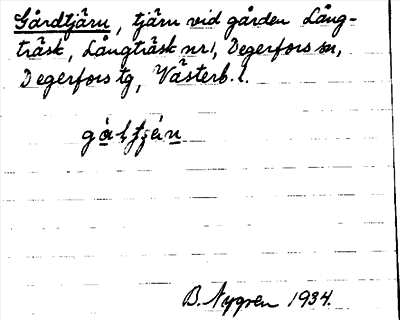 Gårdtjärn, tjärn vid gården Lång-
träsk, Långträsk nr 1, Degerfors sn,
Degerfors tg, Västerb. l.
B. Nygren 1934.